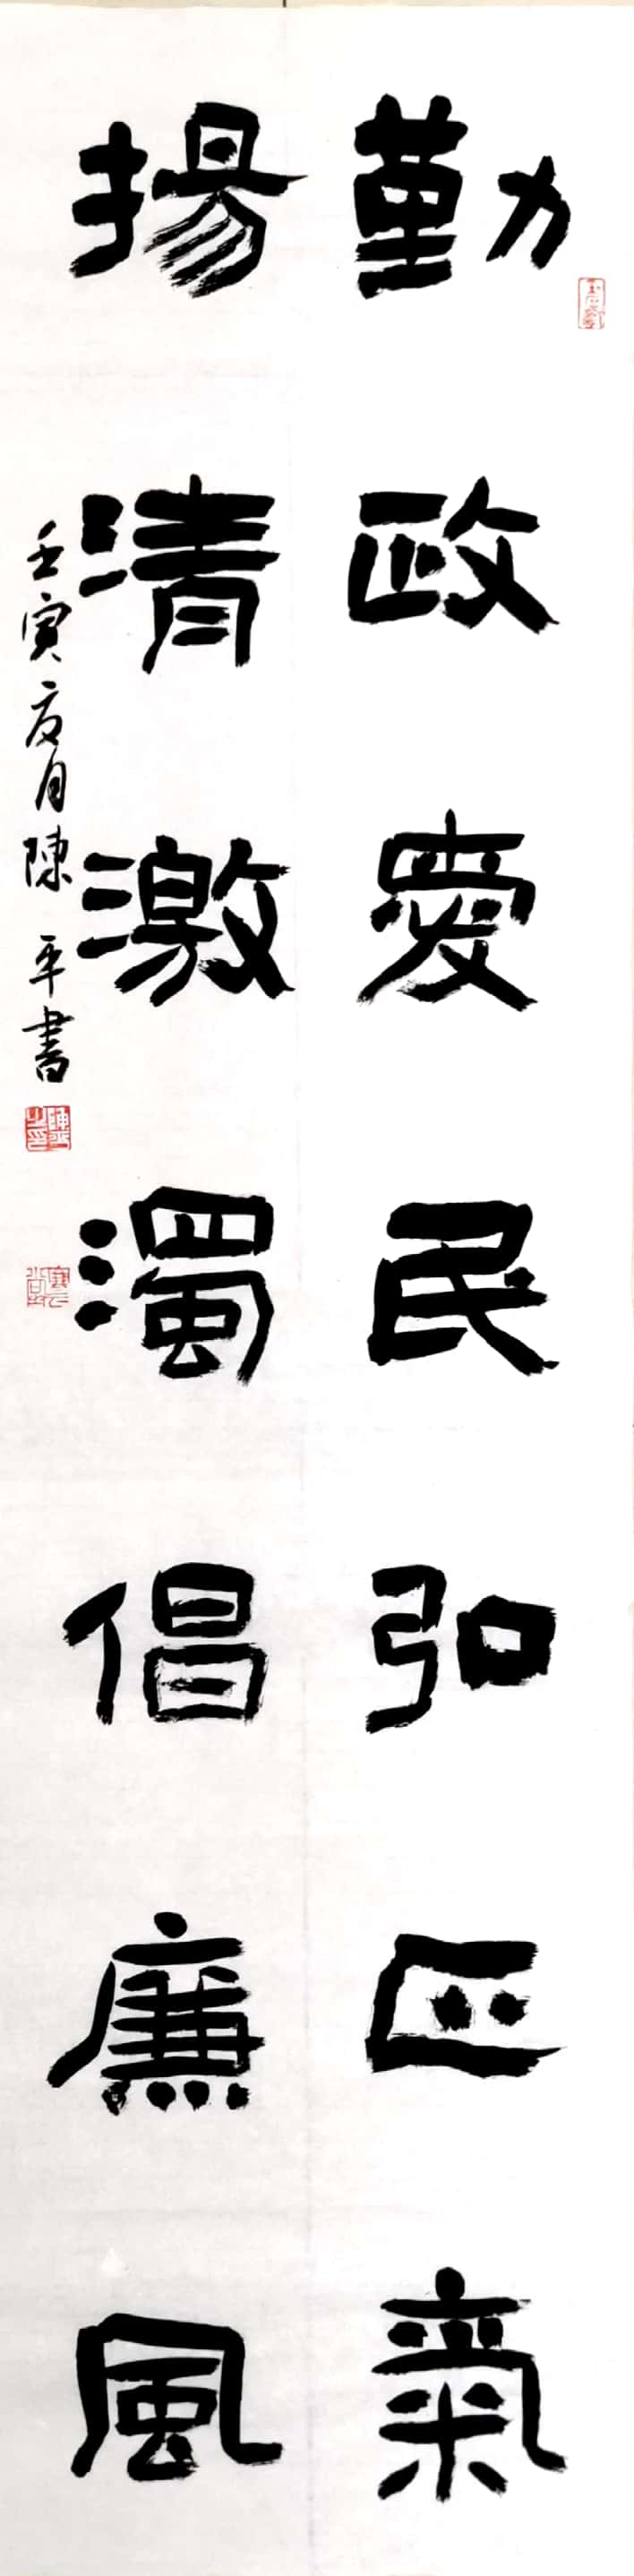 勤政愛民弘正氣
揚清激濁倡廉風
壬寅夏月陳平書